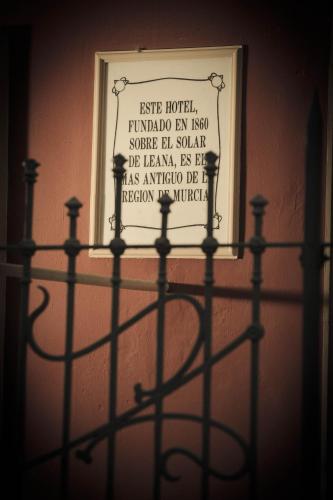 ESTE HOTEL,
FUNDADO EN 1860
SOBRE EL SOLAR
DE LEANA, ES EL
MAS ANTIGUO DE LA
REGION DE MURCIA